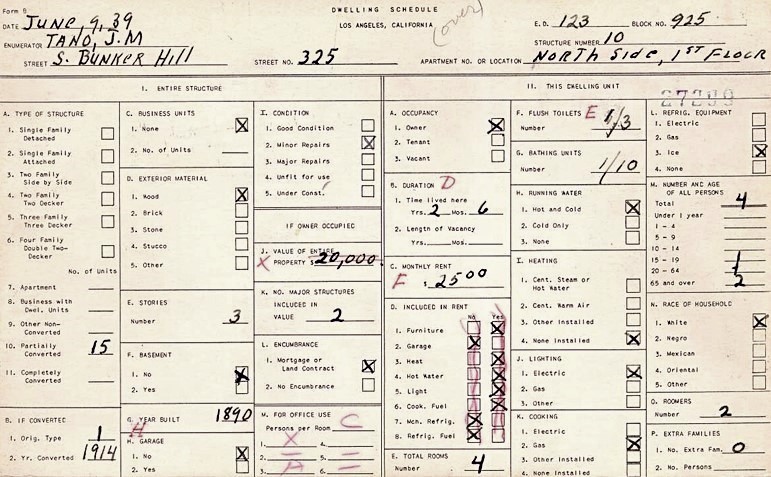 Form B
DWELLING SCHEDULE
LOS ANGELES, CALIFORNIA
(over)
DATE June, 9, 39
ENUMERATOR TANO, J.M
STREET S. BUNKER Hill
STREET NO. 325
E.D. 123 BLOCK NO. 925
STRUCTURE NUMBER 10
APARTMENT NO. OR LOCATION NORTH Side, 1ST FLOOR
I. ENTIRE STRUCTURE
A. TYPE OF STRUCTURE
1. Single Family
Detached
2. Single Family
Attached
3. Two Family
Side by Side
4. Two Family
Two Decker
5. Three Family
Three Decker
6. Four Family
Double Two-
Decker
No. of Units
7. Apartment
8. Business with
Dwel. Units
9. Other Non-
Converted
10. Partially
Converted 15
11. Completely
Converted
B. IF CONVERTED
1. Orig. Type 1
2. Yr. Converted 1914
C. BUSINESS UNITS
1. None X
2. No. of Units
D. EXTERIOR MATERIAL
1. Wood X
2. Brick
3. Stone
4. Stucco
5. Other
E. STORIES
Number 3
F. BASEMENT
1. No X
2. Yes
G. YEAR BUILT 1890
H
H. GARAGE
1. No X
2. Yes
I. CONDITION
1. Good Condition
2. Minor Repairs X
3. Major Repairs
4. Unfit for use
5. Under Const.
IF OWNER OCCUPIED
J. VALUE OF ENTIRE
X PROPERTY $ 20,000.
K. NO. MAJOR STRUCTURES
INCLUDED IN
VALUE 2
L. ENCUMBRANCE
1. Mortgage or
Land Contract X
2. No Encumbrance
M. FOR OFFICE USE
Persons per Room C
1. X 4. —
2. 5. =
3. A 6. =
II. THIS DWELLING UNIT
27299
A. OCCUPANCY
1. Owner X
2. Tenant
3. Vacant
B. DURATION D
1. Time lived here
Yrs. 2 Mos. 6
2. Length of Vacancy
Yrs. Mos.
C. MONTHLY RENT
F $ 25 00
D. INCLUDED IN RENT
No Yes
1. Furniture X
2. Garage X
3. Heat X
4. Hot Water X
5. Light X
6. Cook. Fuel X
7. Mcn. Refrig. X
8. Refrig. Fuel X
E. TOTAL ROOMS
Number 4
F. FLUSH TOILETS E
Number 1/3
G. BATHING UNITS
Number 1/10
H. RUNNING WATER
1. Hot and Cold X
2. Cold Only
3. None
I. HEATING
1. Cent. Steam or
Hot Water
2. Cent. Warm Air
3. Other Installed
4. None Installed X
J. LIGHTING
1. Electric X
2. Gas
3. Other
K. COOKING
1. Electric
2. Gas X
3. Other Installed
4. None Installed
L. REFRIG. EQUIPMENT
1. Electric
2. Gas
3. Ice X
4. None
M. NUMBER AND AGE
OF ALL PERSONS
Total 4
Under 1 year
1 - 4
5 - 9
10 - 14
15 - 19 1
20 - 64 1
65 and over 2
N. RACE OF HOUSEHOLD
1. White X
2. Negro
3. Mexican
4. Oriental
5. Other
O. ROOMERS
Number 2
P. EXTRA FAMILIES
1. No. Extra Fam. 0
2. No. Persons